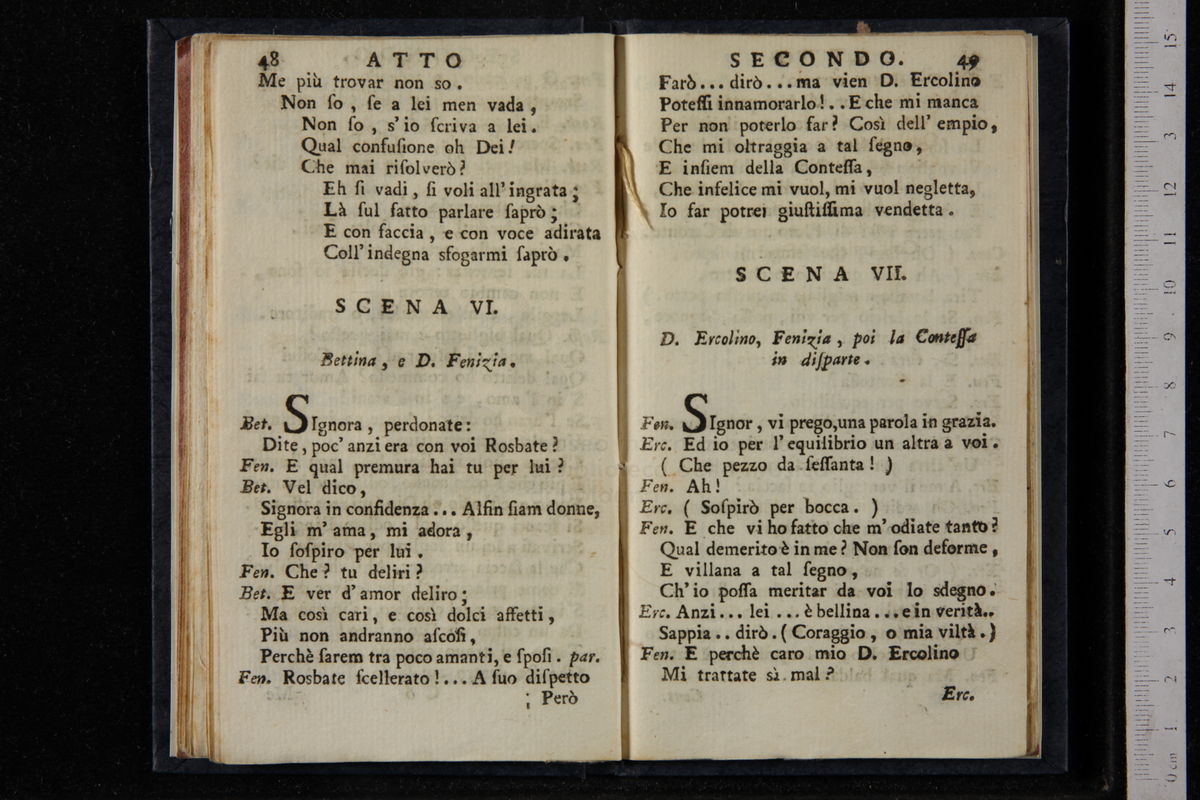 48 ATTO
Me più trovar non so.
Non ſo, ſe a lei men vada,
Non ſo, s'io ſcriva a lei.
Qual confuſione oh Dei!
Che mai riſolverò?
Eh ſi vadi, ſi voli all'ingrata;
Là ſul fatto parlare ſaprò;
E con faccia, e con voce adirata
Coll'indegna sfogarmi ſaprò.
SCENA VI.
Bettina, e D. Fenizia.
Bet. SIgnora, perdonate:
Dite, poc'anzi era con voi Rosbate?
Fen. E qual premura hai tu per lui?
Bet. Vel dico,
Signora in confidenza... Alfin ſiam donne,
Egli m'ama, mi adora,
Io ſoſpiro per lui.
Fen. Che? tu deliri?
Bet. E ver d'amor deliro;
Ma così cari, e così dolci affetti,
Più non andranno aſcoſi,
Perchè ſarem tra poco amanti, e ſpoſi. par.
Fen. Rosbate ſcellerato!... A ſuo diſpetto
Però
SECONDO. 49
Farò... dirò... ma vien D. Ercolino
Poteſſi innamorarlo!.. E che mi manca
Per non poterlo far? Così dell'empio,
Che mi oltraggia a tal ſegno,
E inſiem della Conteſſa,
Che infelice mi vuol, mi vuol negletta,
Io far potrei giuſtiſſima vendetta.
SCENA VII.
D. Ercolino, Fenizia, poi la Conteſſa
in diſparte.
Fen. SIgnor, vi prego, una parola in grazia.
Erc. Ed io per l'equilibrio un altra a voi.
( Che pezzo da ſeſſanta! )
Fen. Ah!
Erc. ( Soſpirò per bocca. )
Fen. E che vi ho fatto che m'odiate tanto?
Qual demerito è in me? Non ſon deforme,
E villana a tal ſegno,
Ch'io poſſa meritar da voi lo sdegno.
Erc. Anzi... lei... è bellina... e in verità..
Sappia.. dirò. ( Coraggio, o mia viltà. )
Fen. E perchè caro mio D. Ercolino
Mi trattate sì mal?
Erc.
0 cm 1 2 3 4 5 6 7 8 9 10 11 12 13 14 15